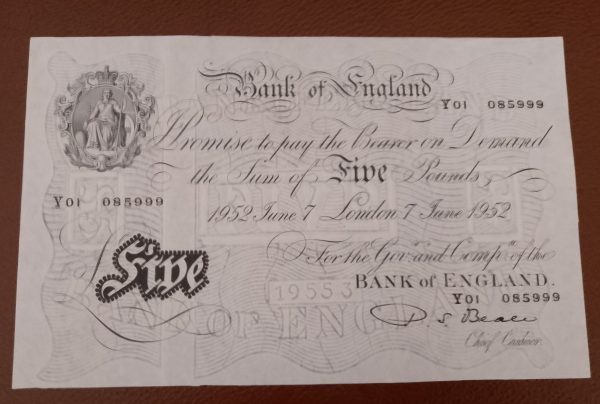 Bank of England
Y01 085999
I Promise to pay the Bearer on Demand
the Sum of Five Pounds
Y01 085999
1952 June 7 London 7 June 1952
For the Gov.r and Comp.a of the
BANK OF ENGLAND.
Y01 085999
Five
19553
P. S. Beale
Chief Cashier.
BANK OF ENGLAND